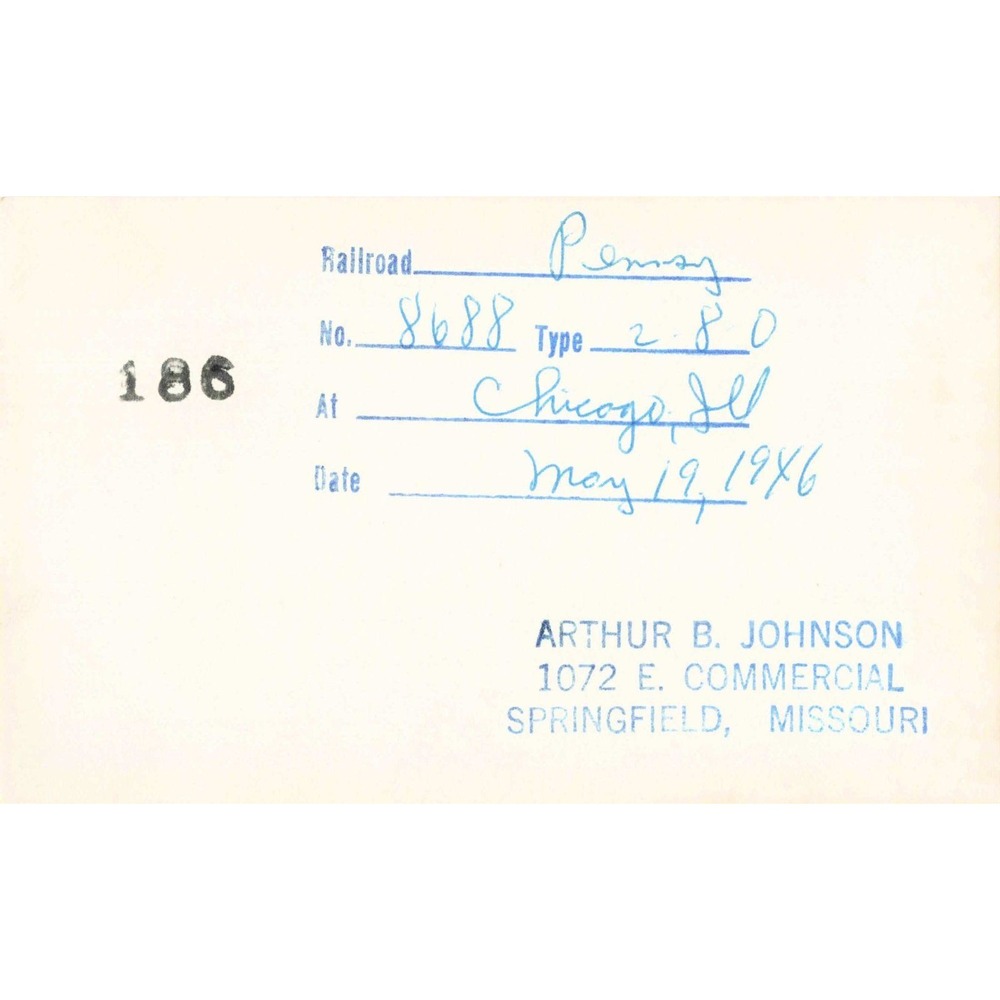 Railroad Pennsy
No. 8688 Type 2-8-0
186
At Chicago, Ill
Date May 19, 1946
ARTHUR B. JOHNSON
1072 E. COMMERCIAL
SPRINGFIELD, MISSOURI